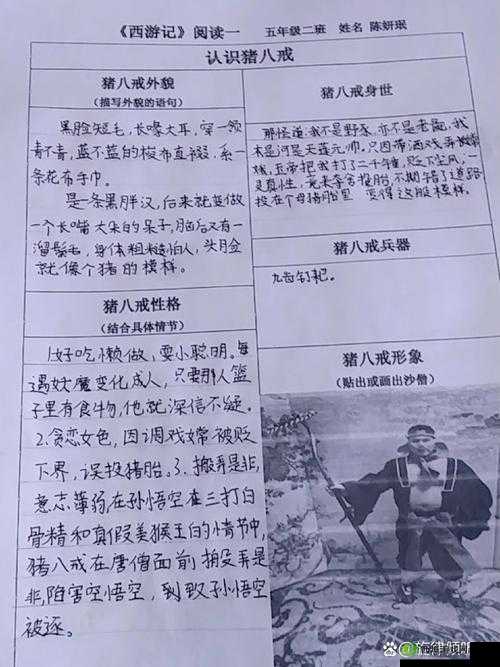 《西游记》阅读一 五年级二班 姓名 陈妍珉
认识猪八戒
猪八戒外貌
(描写外貌的语句)
黑脸短毛,长喙大耳,穿一领
青不青,蓝不蓝的梭布直裰,系一
条花布手巾。
是一条黑胖汉,后来就变做
一个长嘴大耳的呆子,脑后又有一
溜鬃毛,身体粗糙怕人,头脸
就像个猪的模样。
猪八戒身世
那怪道:我不是野豕,亦不是老彘,我
本是河是天蓬元帅,只因带酒戏弄嫦
娥,玉帝把我打了二千锤,贬下尘凡,一
灵真性,竟来夺舍投胎,不期错了道路
投在个母猪胎里 变得这般模样。
猪八戒兵器
九齿钉耙。
猪八戒性格
(结合具体情节)
1.好吃懒做,耍小聪明。每
遇妖魔变化成人,只要那人篮
子里有食物,他就深信不疑。
2.贪恋女色,因调戏嫦被贬
下界,误投猪胎。3.搬弄是非,
意志薄弱,在孙悟空在三打白
骨精和真假美猴王的情节中,
猪八戒在唐僧面前搬弄是
非,陷害空悟空,到致孙悟空
被逐。
猪八戒形象
(贴出或画出沙僧)